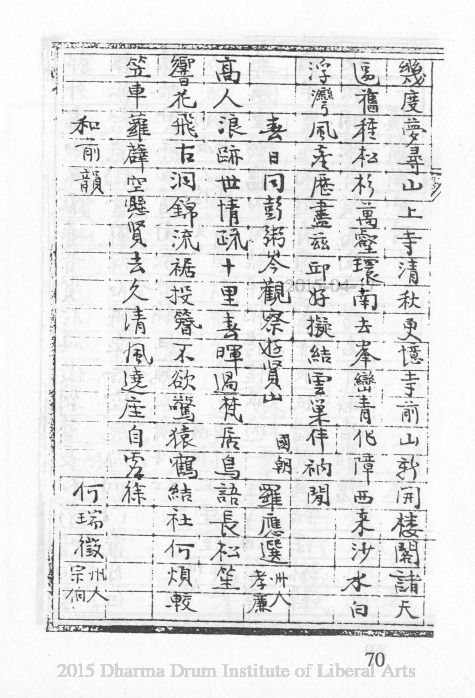 幾度夢尋山上寺清秋更憶寺前山新開樓閣諸天
舊種松杉萬壑環南去峯巒青化障西來沙水白
浮灣風差歷盡茲邱好擬結雲巢伴衲閒
春日同彭粥岑觀察遊賢山 國朝 羅應選 州人孝廉
高人浪跡世情疏十里春暉過梵居鳥語長松笙
響花飛古洞錦流裾投簪不欲驚猿鶴結社何煩較
笠車蘿薜空懸賢去久清風遶座自徐
和前韻 何瑞徵 州人宗伯
70
2015 Dharma Drum Institute of Liberal Arts